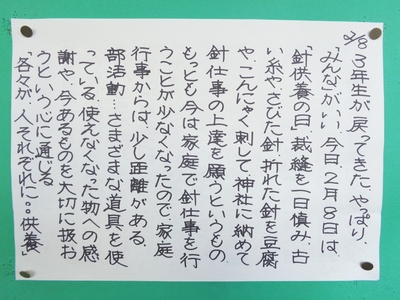 2/8
3年生が戻ってきた。やっぱり、
「みんな」がいい。今日2月8日は、
「針供養の日」裁縫を一日慎み、古
い糸やさびた針、折れた針を豆腐
や、こんにゃく刺して神社に納めて
針仕事の上達を願うというもの。
もっとも今は家庭で針仕事を行
うことが少なくなったので、家庭
行事からは、少し距離がある。
部活動…さまざまな道具を使
っている。使えなくなった物への感
謝や、今あるものを大切に扱お
うという心に通じる。
「各々が、人それぞれに○○供養」